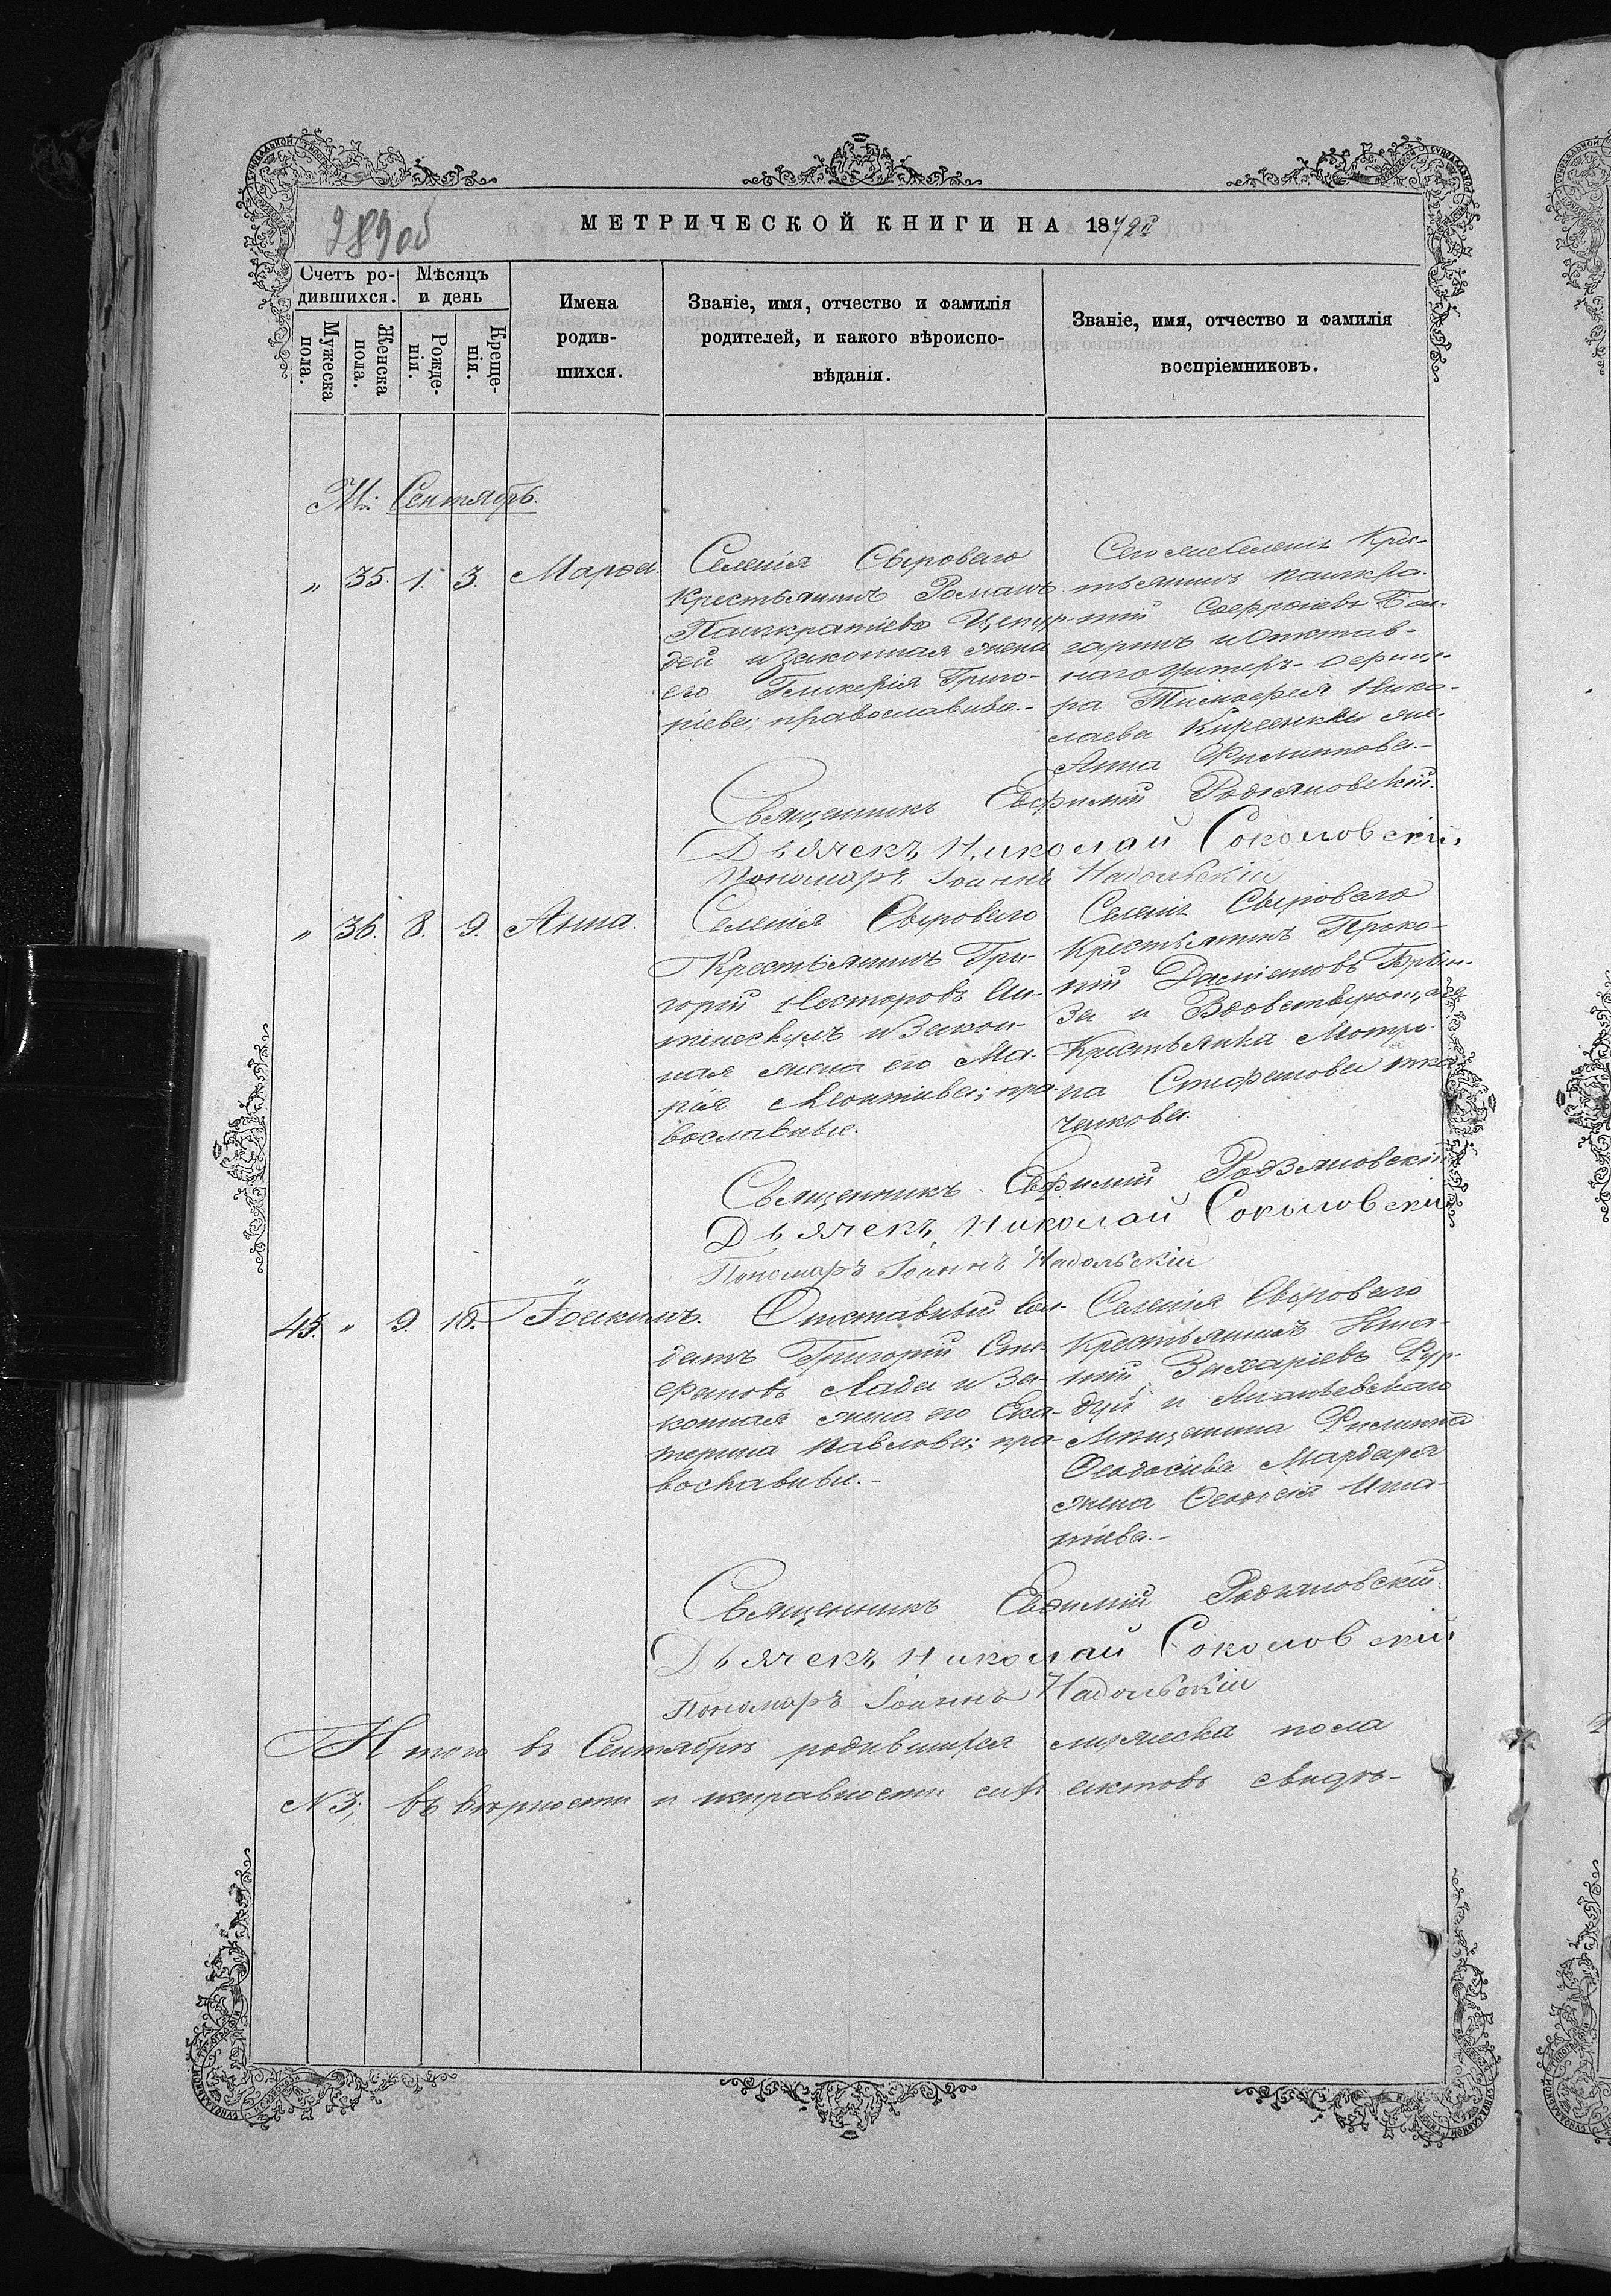 289об
МЕТРИЧЕСКОЙ КНИГИ НА 1872й
Счетъ ро-
дившихся.
Мѣсяцъ
и день
Мужеска
пола.
Женска
пола.
Рожде-
нія.
Креще-
нія.
Имена
родив-
шихся.
Званіе, имя, отчество и фамилія
родителей, и какого вѣроиспо-
вѣданія.
Званіе, имя, отчество и фамилія
воспріемниковъ.
М. Сентябрь.
" 35. 1. 3. Марѳа.
Селенія Сыроваго
Крестьянинъ Романъ
Панкратіевъ
и законная жена
его Гликерія Григо-
ріева; православные.-
Сего же Селенія Крес-
тьянинъ Панкра-
тій Софроніевъ
и Отстав-
наго Унтеръ-Офице-
ра Тимофея Нико-
лаева жена
Анна Филиппова.-
Священникъ Евфимій Родзяновскій.
Дьячекъ Николай Соколовскій
Пономарь Іоаннъ Надольскій
" 36. 8. 9. Анна.
Селенія Сыроваго
Крестьянинъ Гри-
горій Несторовъ
и Закон-
ная жена его Ма-
рія Леонтіева; пра-
вославные.
Селенія Сыроваго
Крестьянинъ Проко-
пій Даміановъ
и Вдовствующая
Крестьянка Мотро-
на Стефанова Тка-
ченкова.
Священникъ Евфимій Родзяновскій
Дьячекъ Николай Соколовскій
Пономарь Іоаннъ Надольскій
45. " 9. 10. Іоакимъ.
Отставный Сол-
датъ Григорій Сте-
фановъ Лада и За-
конная жена его Ека-
терина Павлова; пра-
вославные.-
Селенія Сыроваго
Крестьянинъ Игна-
тій Захаріевъ
и Ананьевскаго
Мещанина Филиппа
Ѳеодосіева Мардаря
жена Ѳеодосія Игна-
тіева.-
Священникъ Евфимій Родзяновскій.
Дьячекъ Николай Соколовскій
Пономарь Іоаннъ Надольскій
Итого въ Сентябрѣ родившихся мужеска пола
N 3; въ вѣрности и исправности сихъ актовъ свидѣ-